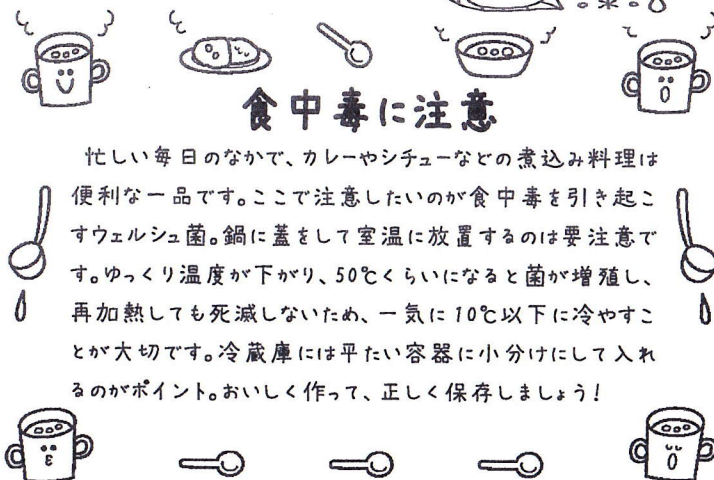 食中毒に注意
忙しい毎日のなかで、カレーやシチューなどの煮込み料理は
便利な一品です。ここで注意したいのが食中毒を引き起こ
すウェルシュ菌。鍋に蓋をして室温に放置するのは要注意で
す。ゆっくり温度が下がり、50℃くらいになると菌が増殖し、
再加熱しても死滅しないため、一気に10℃以下に冷やすこ
とが大切です。冷蔵庫には平たい容器に小分けにして入れ
るのがポイント。おいしく作って、正しく保存しましょう！